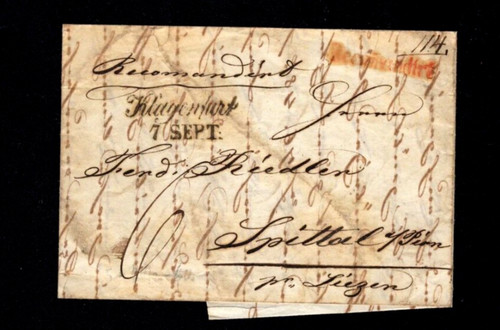 114.
Recomandirt
Recomandirt
Klagenfurt
7 SEPT.
Herrn
Ferd. Riedler
Spittal a/Pirn
pr. Liezen
6